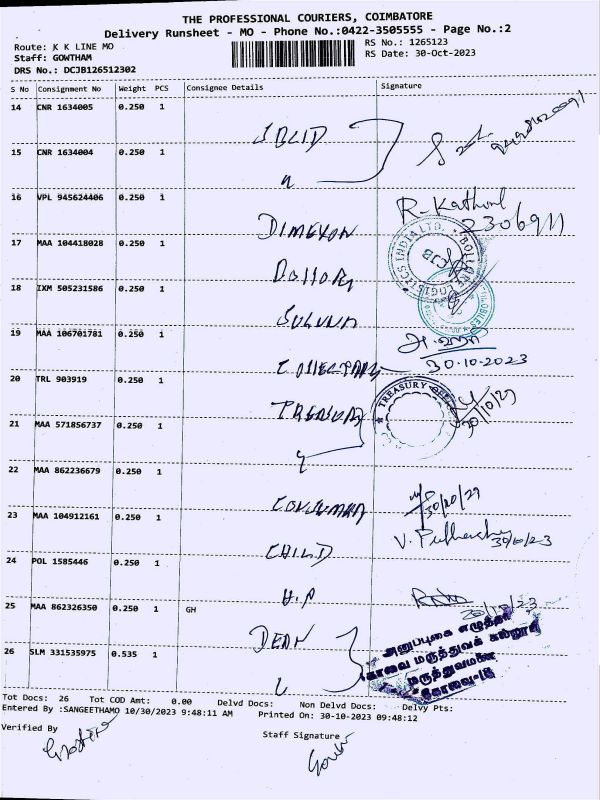 THE PROFESSIONAL COURIERS, COIMBATORE
Delivery Runsheet - MO - Phone No.:0422-3505555 - Page No.:2
Route: K K LINE MO
RS No.: 1265123
Staff: GOWTHAM
RS Date: 30-Oct-2023
DRS No.: DCJB126512302
S No Consignment No Weight PCS Consignee Details Signature
14 CNR 1634005 0.250 1
15 CNR 1634004 0.250 1
16 VPL 945624406 0.250 1
R. Kathir
17 MAA 104418028 0.250 1
BOLLORE LOGISTICS INDIA LTD.
CJB
18 IXM 505231586 0.250 1
19 MAA 106701781 0.250 1
30.10.2023
20 TRL 903919 0.250 1
TREASURY
TREASURY
21 MAA 571856737 0.250 1
22 MAA 862236679 0.250 1
23 MAA 104912161 0.250 1
CHILD
24 POL 1585446 0.250 1
H.P
25 MAA 862326350 0.250 1 GH
DEAN
26 SLM 331535975 0.535 1
அனுப்புகை எழுத்தர்
கோவை மருத்துவக் கல்லூரி
மருத்துவமனை
கோவை-18
Tot Docs: 26 Tot COD Amt: 0.00 Delvd Docs: Non Delvd Docs: Delvy Pts:
Entered By :SANGEETHAMO 10/30/2023 9:48:11 AM Printed On: 30-10-2023 09:48:12
Verified By
Staff Signature